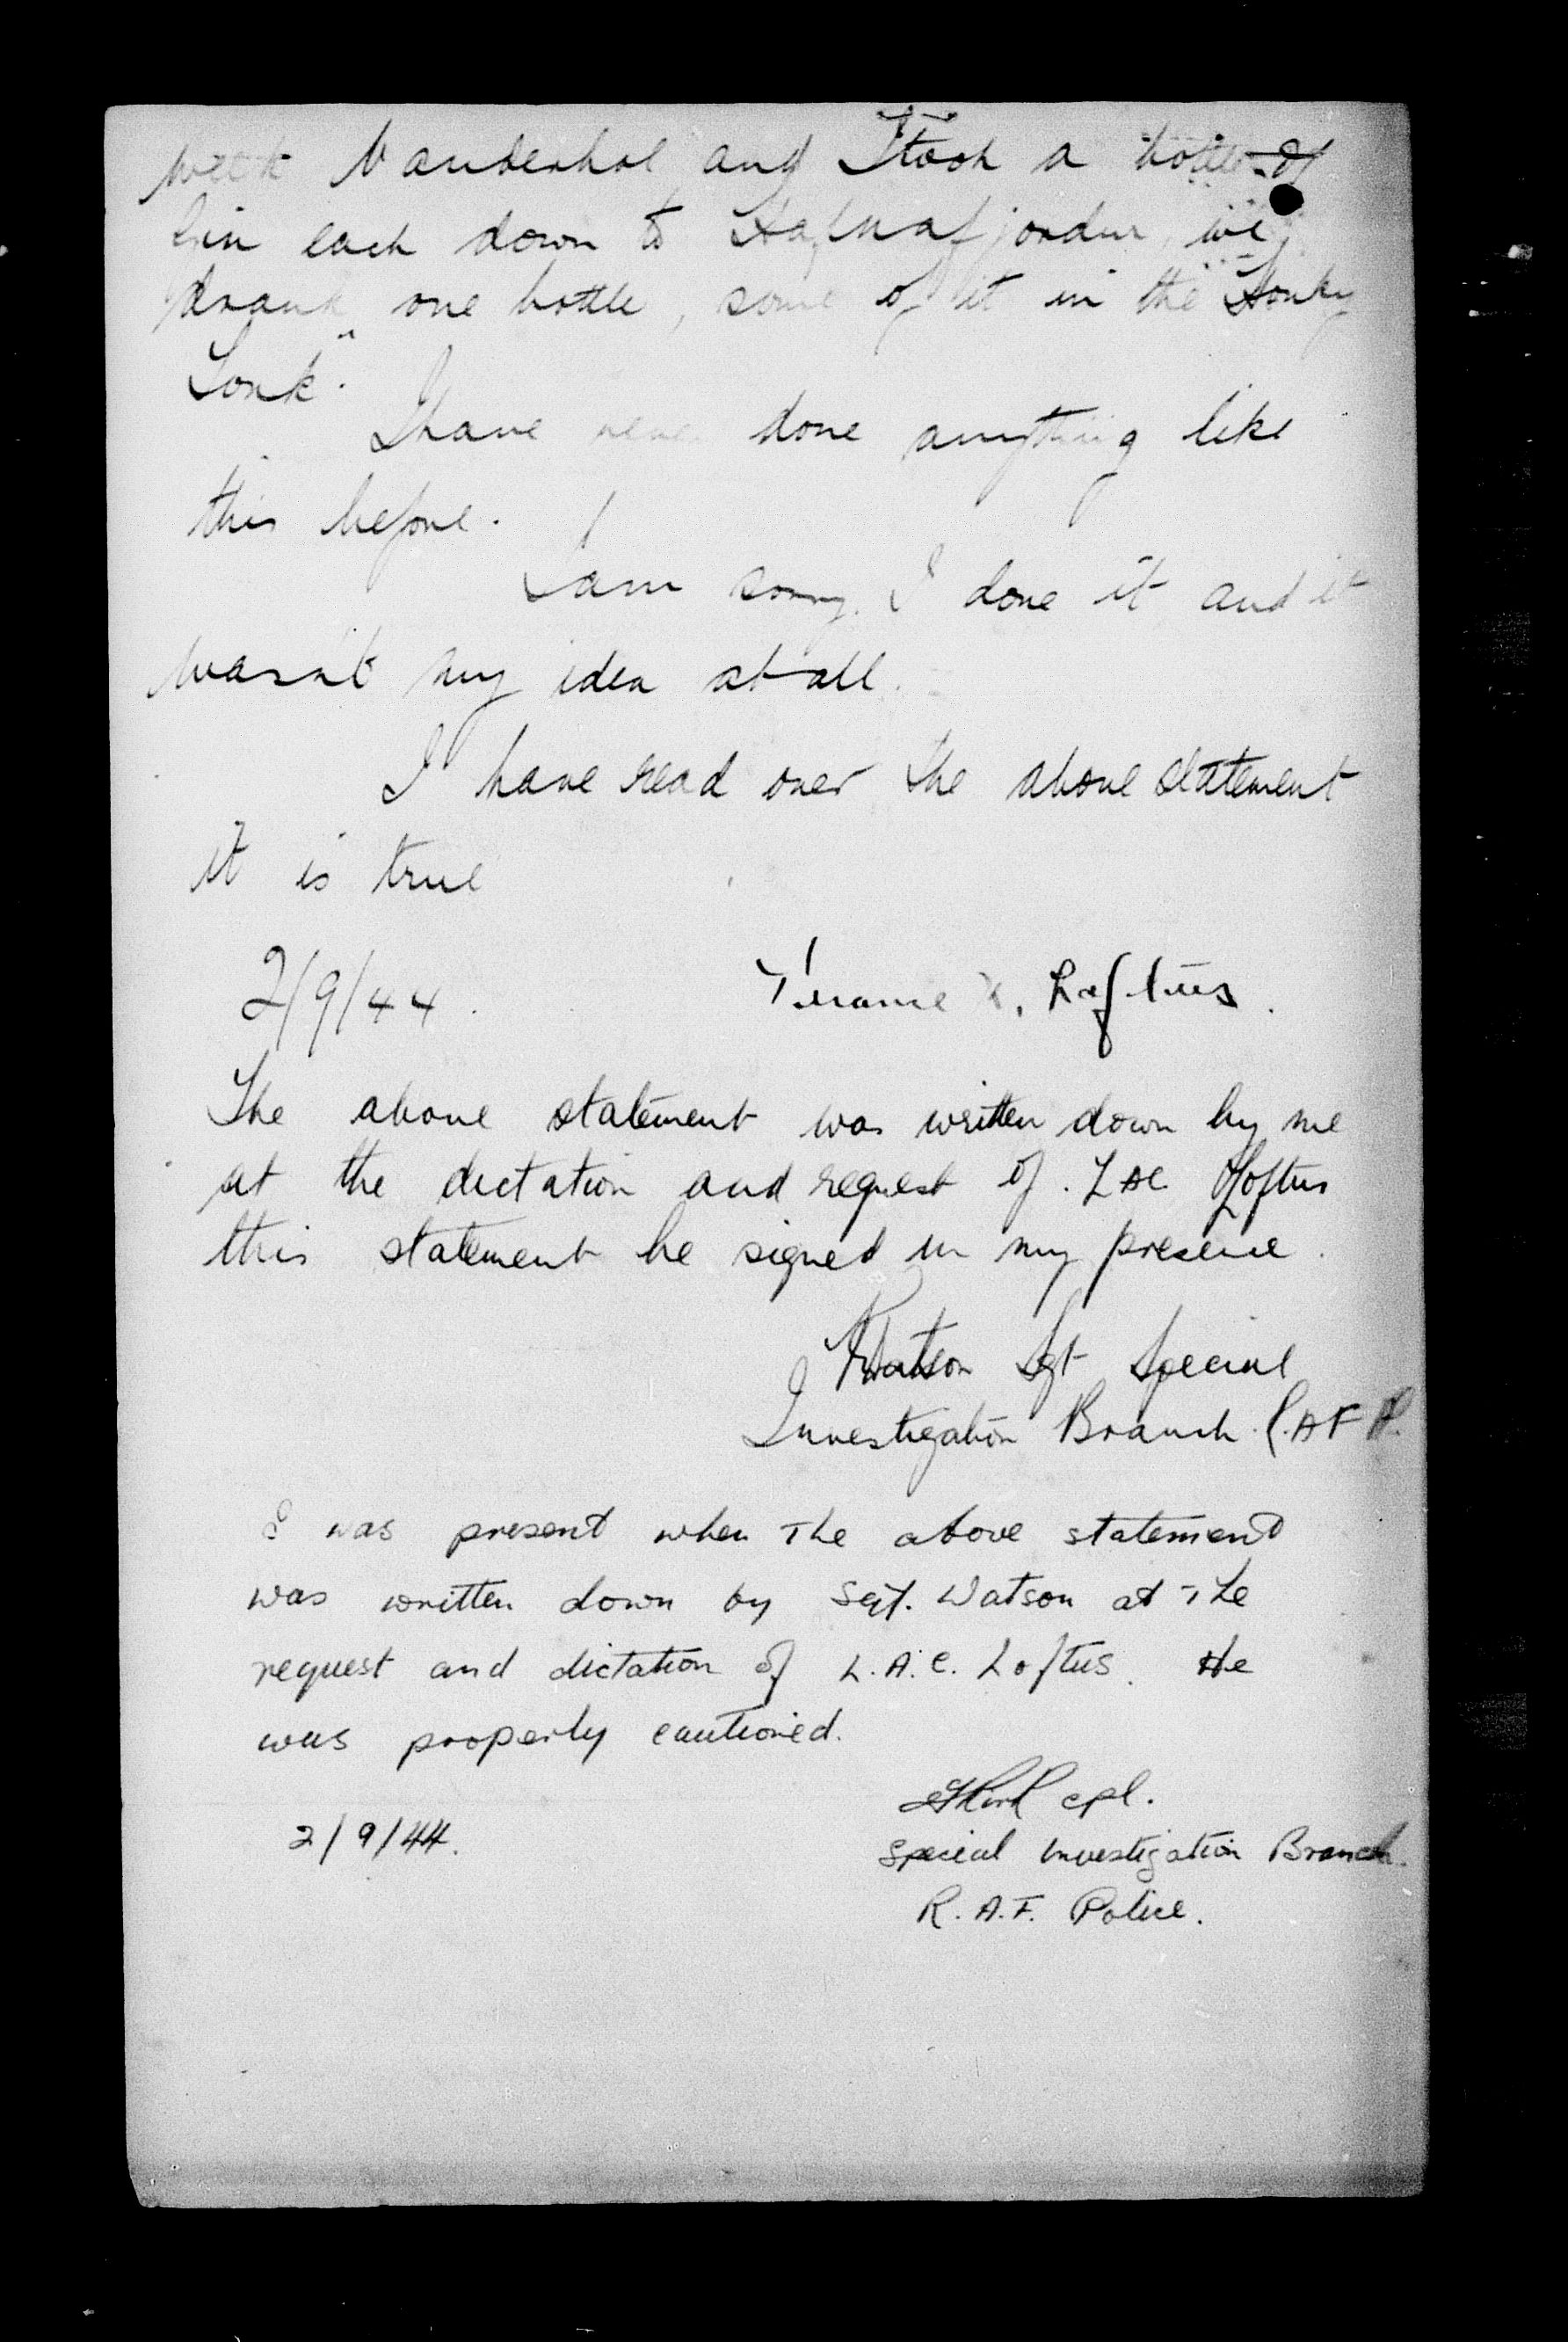 week Vandenhol and I took a bottle of
Gin each down to Hafnafjordur, we
drank one bottle, some of it in the "Honky
Tonk".
I have never done anything like
this before.
I am sorry I done it and it
wasn't my idea at all.
I have read over the above statement
it is true
2/9/44. Loftus.
The above statement was written down by me
at the dictation and request of. LAC Loftus
this statement he signed in my presence.
Watson Sgt Special
Investigation Branch R.A.F.P.
I was present when the above statement
was written down by Sgt. Watson at the
request and dictation of L.A.C. Loftus. He
was properly cautioned.
cpl.
2/9/44. Special Investigation Branch.
R.A.F. Police.